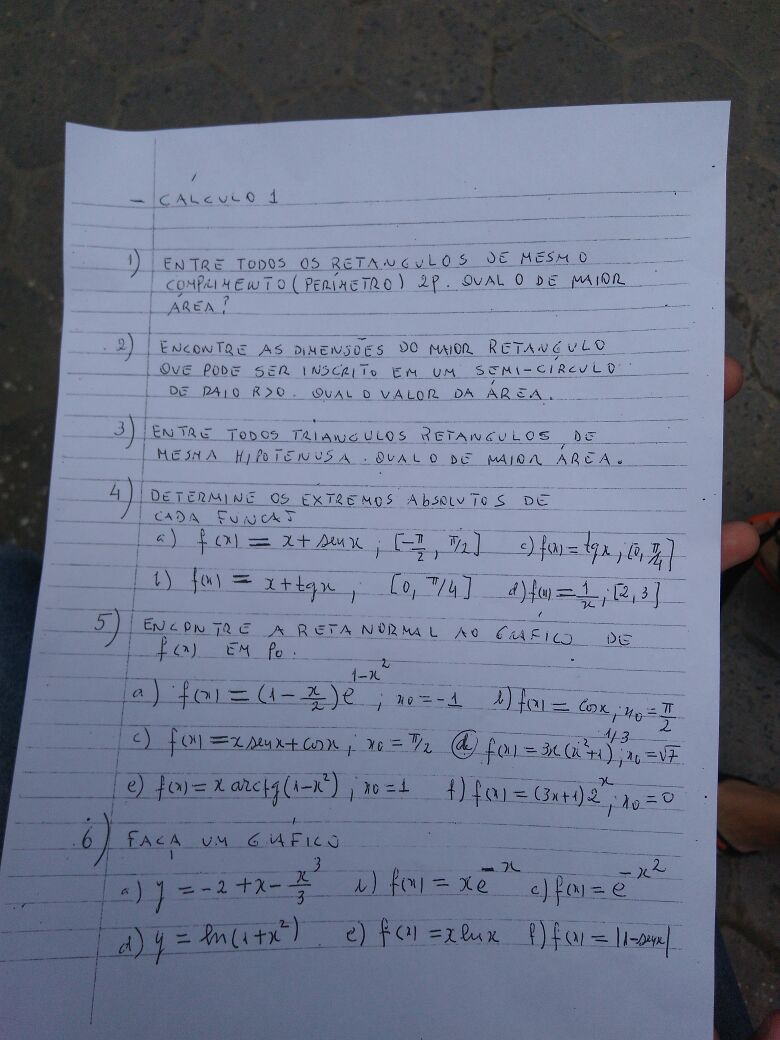 - CÁLCULO 1
1) ENTRE TODOS OS RETANGULOS DE MESMO
COMPRIMENTO (PERÍMETRO) 2P. QUAL O DE MAIOR
ÁREA?
2) ENCONTRE AS DIMENSÕES DO MAIOR RETANGULO
QUE PODE SER INSCRITO EM UM SEMI-CÍRCULO
DE RAIO R>0. QUAL O VALOR DA ÁREA.
3) ENTRE TODOS TRIANGULOS RETANGULOS, DE
MESMA HIPOTENUSA. QUAL O DE MAIOR ÁREA.
4) DETERMINE OS EXTREMOS ABSOLUTOS DE
CADA FUNÇÃO
a) f(x) = x + senx ; [-π/2, π/2] c) f(x) = tgx ; [0, π/4]
b) f(x) = x + tgx , [0, π/4] d) f(x) = 1/x ; [2, 3]
5) ENCONTRE A RETA NORMAL AO GRÁFICO DE
f(x) EM P0.
a) f(x) = (1 - x/2)e^(1-x²) ; x0 = -1 b) f(x) = cosx ; x0 = π/2
c) f(x) = x senx + cosx ; x0 = π/2 d) f(x) = 3x(x²+1)^(1/3) ; x0 = √7
e) f(x) = x arctg(1-x²) ; x0 = 1 f) f(x) = (3x+1)2^x ; x0 = 0
6) FAÇA UM GRÁFICO
a) y = -2 + x - x³/3 b) f(x) = xe^(-x) c) f(x) = e^(-x²)
d) y = ln(1+x²) e) f(x) = x lnx f) f(x) = |1-senx|